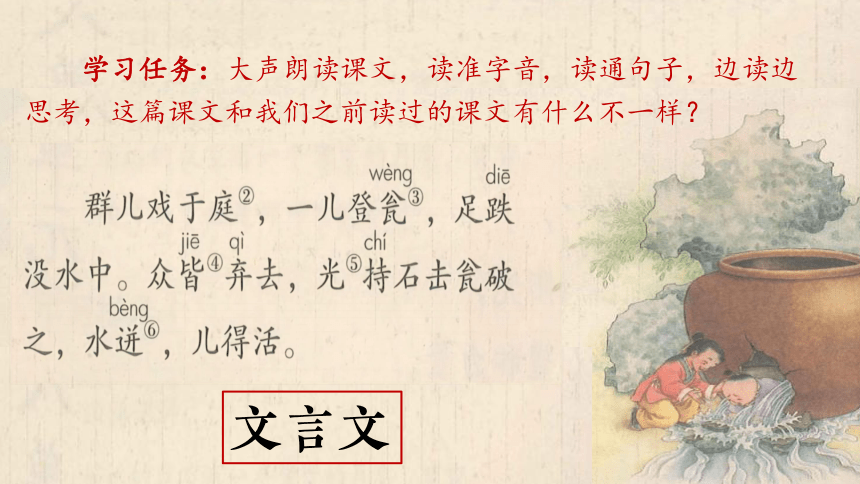 学习任务：大声朗读课文，读准字音，读通句子，边读边
思考，这篇课文和我们之前读过的课文有什么不一样？
wèng diē
群儿戏于庭②，一儿登瓮③，足跌
jiē qì chí
没水中。众皆④弃去，光⑤持石击瓮破
bèng
之，水迸⑥，儿得活。
文言文